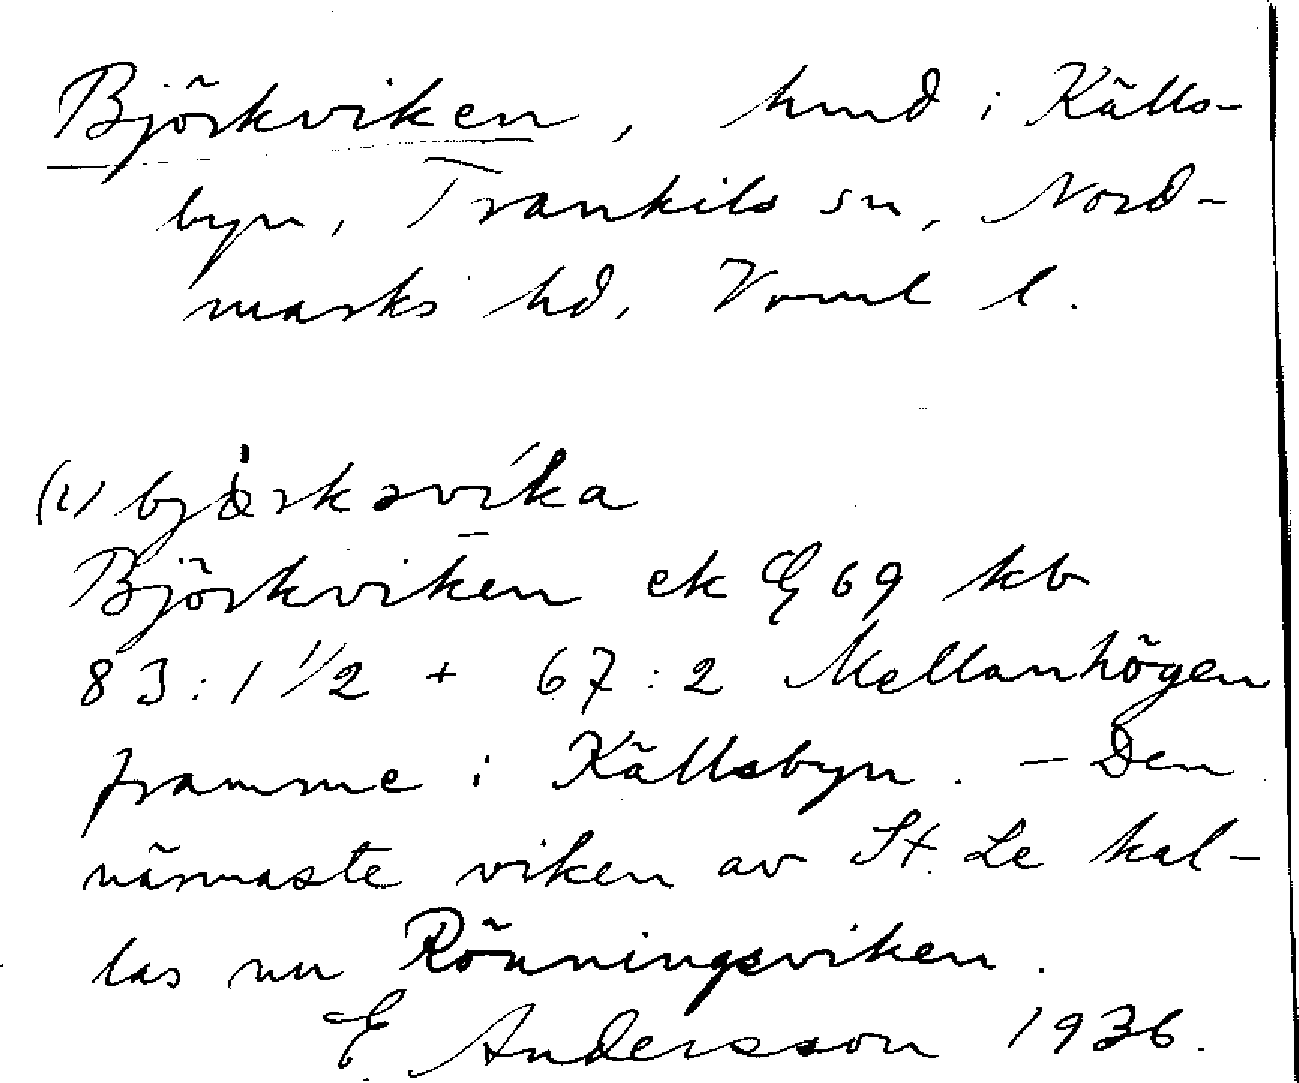 Björkviken, hmd i Källs-
byn, Trankils sn, Nord-
marks hd, Värml l.
(i) bjørkavíka
Björkviken ek G 69 kb
83:1 1/2 + 67:2 Mellanhögen
framme i Källsbyn. - Den
närmaste viken av St. Le kal-
las nu Rönningsviken.
E Andersson 1936.